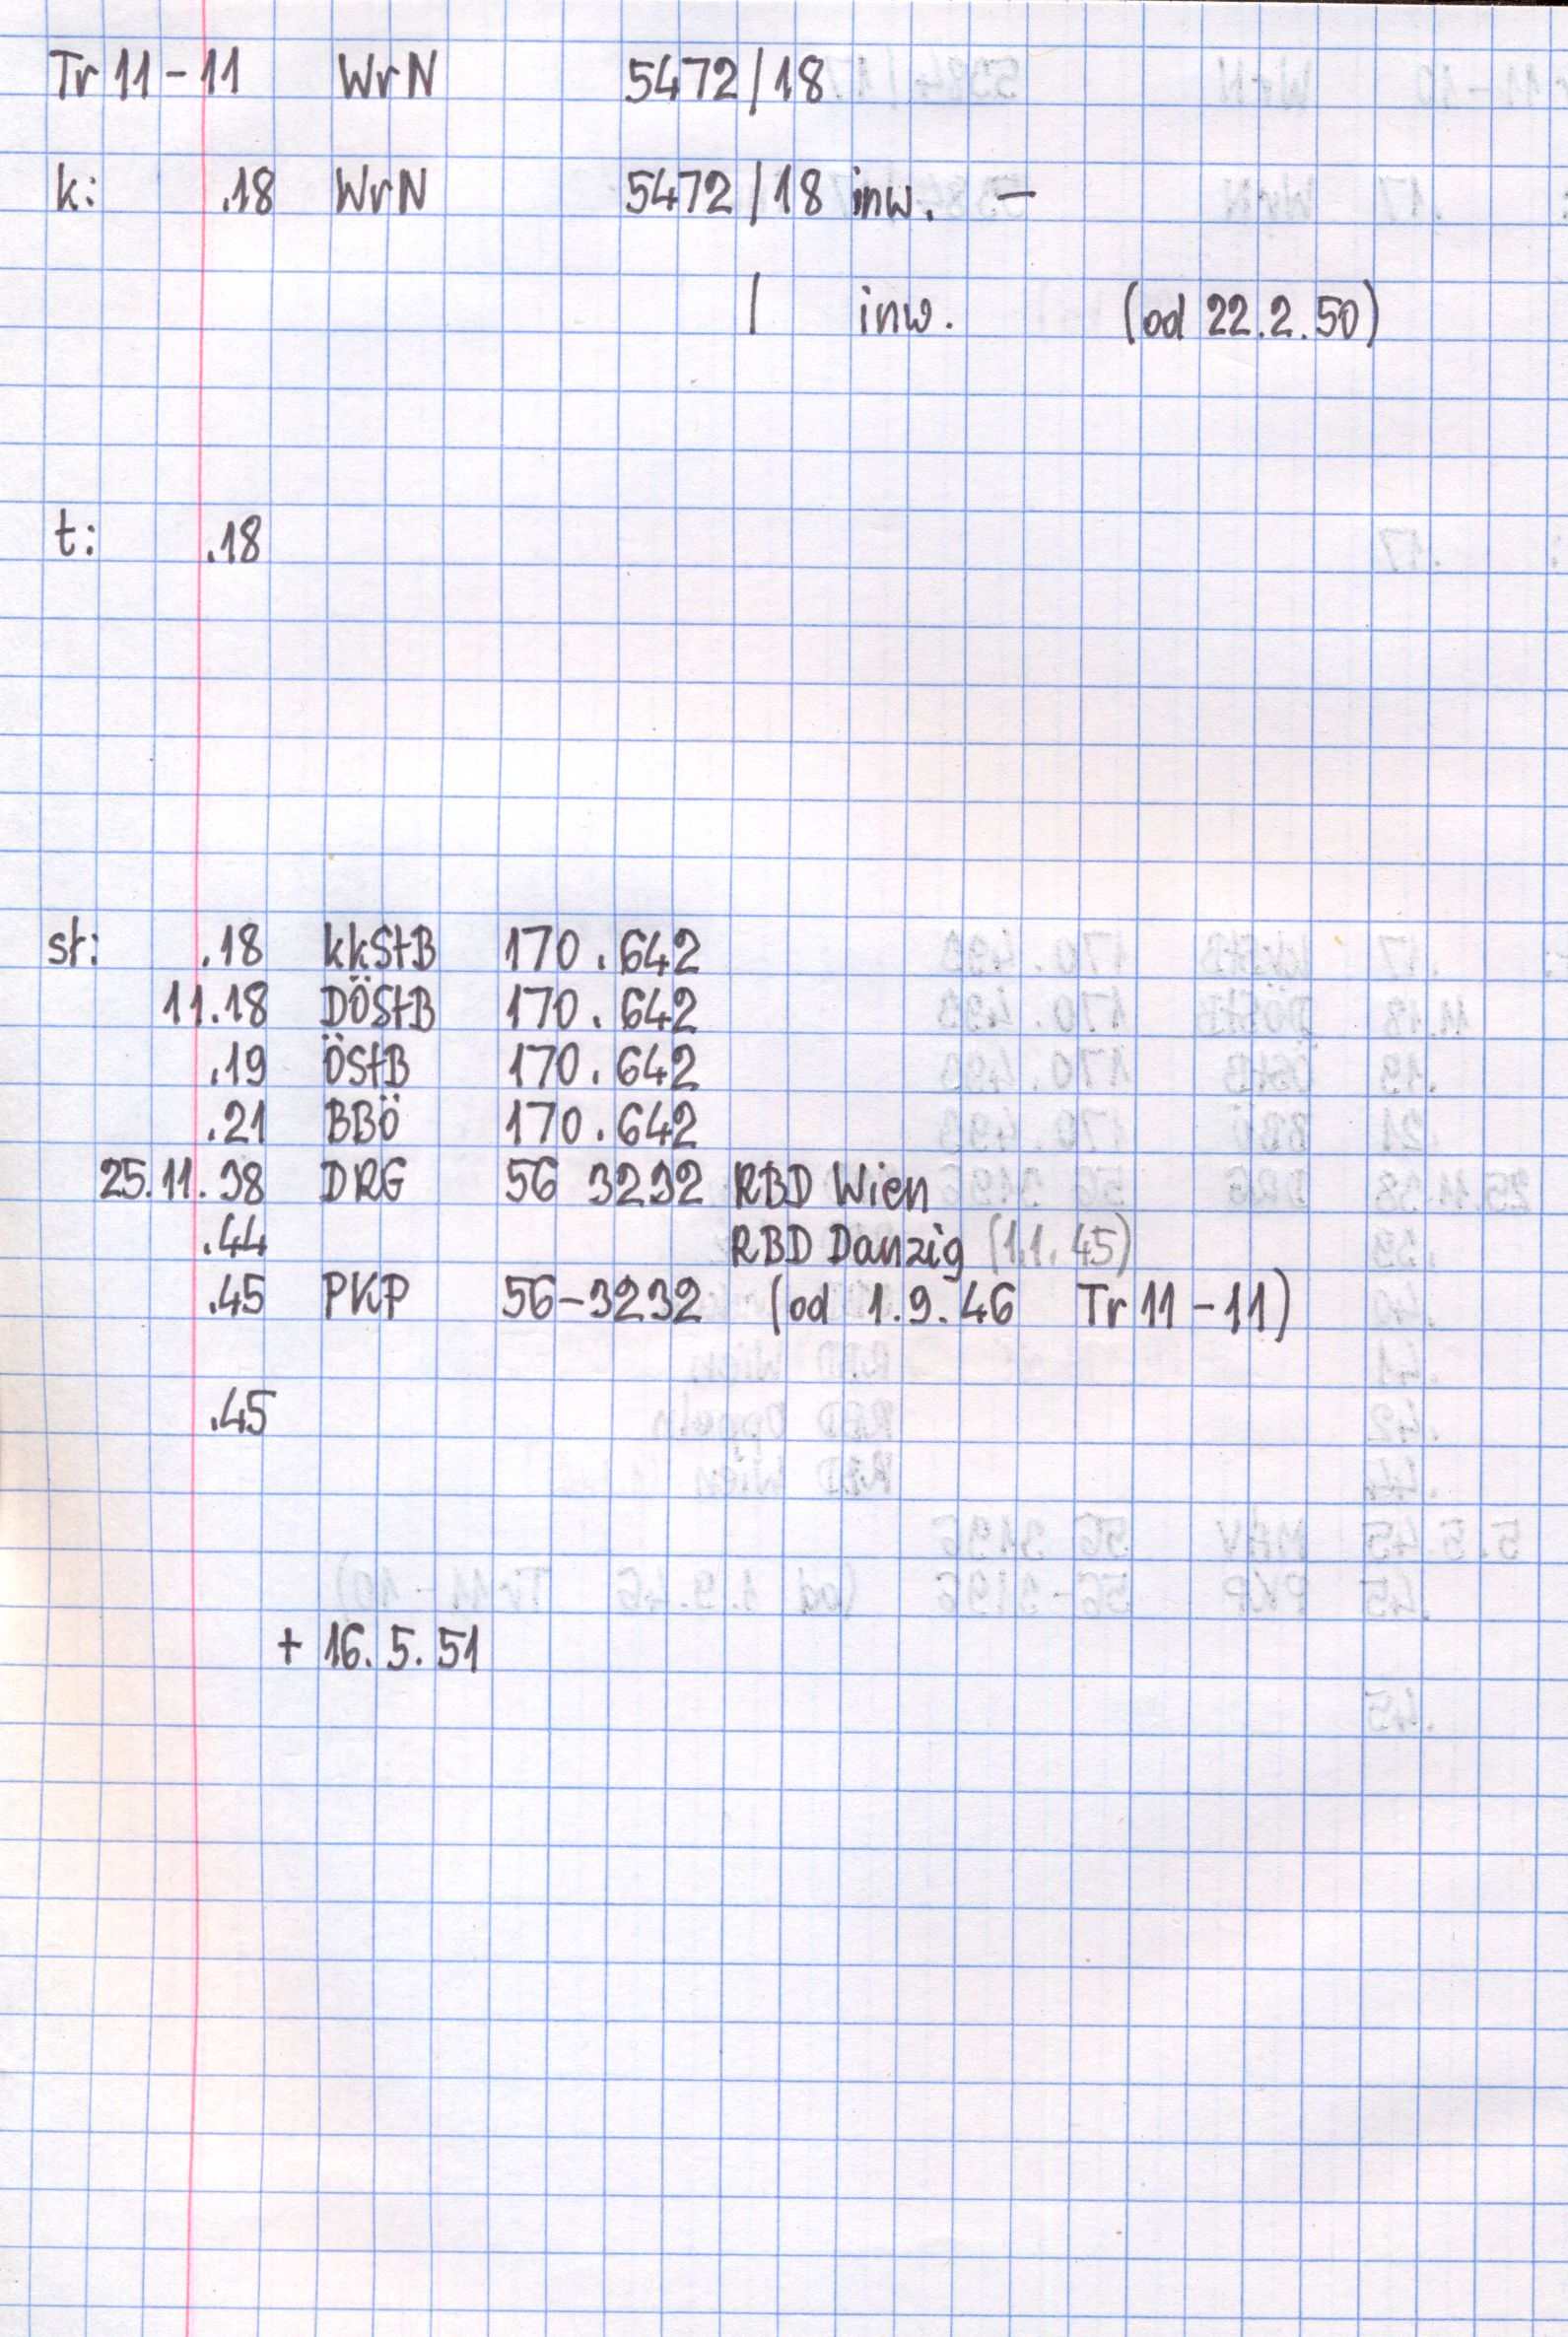 Tr 11-11 WrN 5472/18
k: .18 WrN 5472/18 inw. –
/ inw. (od 22.2.50)
t: .18
st: .18 kkStB 170.642
11.18 DÖStB 170.642
.19 ÖStB 170.642
.21 BBÖ 170.642
25.11.38 DRG 56 3232 RBD Wien
.44 RBD Danzig (1.1.45)
.45 PKP 56-3232 (od 1.9.46 Tr 11-11)
.45
+ 16.5.51